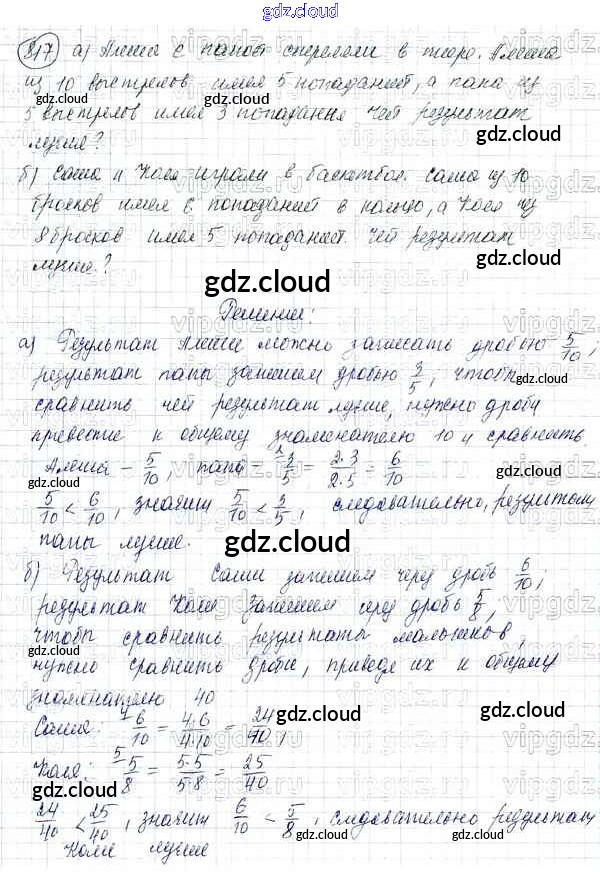 gdz.cloud
817 а) Алеша с папой стреляли в тире. Алеша
из 10 выстрелов имел 5 попаданий, а папа из
5 выстрелов имел 3 попадания. Чей результат
лучше?
gdz.cloud
б) Саша и Коля играли в баскетбол. Саша из 10
бросков имел 6 попаданий в кольцо, а Коля из
8 бросков имел 5 попаданий. Чей результат
лучше?
gdz.cloud
Решение:
а) Результат Алеши можно записать дробью 5/10;
результат папы запишем дробью 3/5, чтобы
сравнить чей результат лучше, нужно дроби
привести к общему знаменателю 10 и сравнить
Алеша – 5/10, папа – 3/5 = 2·3/2·5 = 6/10
gdz.cloud
5/10 < 6/10, значит 5/10 < 3/5, следовательно, результат
папы лучше.
gdz.cloud
б) Результат Саши запишем через дробь 6/10;
результат Коли запишем через дробь 5/8,
чтобы сравнить результаты мальчиков,
нужно сравнить дроби, приведя их к общему
знаменателю 40
gdz.cloud
Саша: 6/10 = 4·6/4·10 = 24/40,
Коля: 5/8 = 5·5/5·8 = 25/40
gdz.cloud
24/40 < 25/40, значит 6/10 < 5/8, следовательно результат
Коли лучше
gdz.cloud